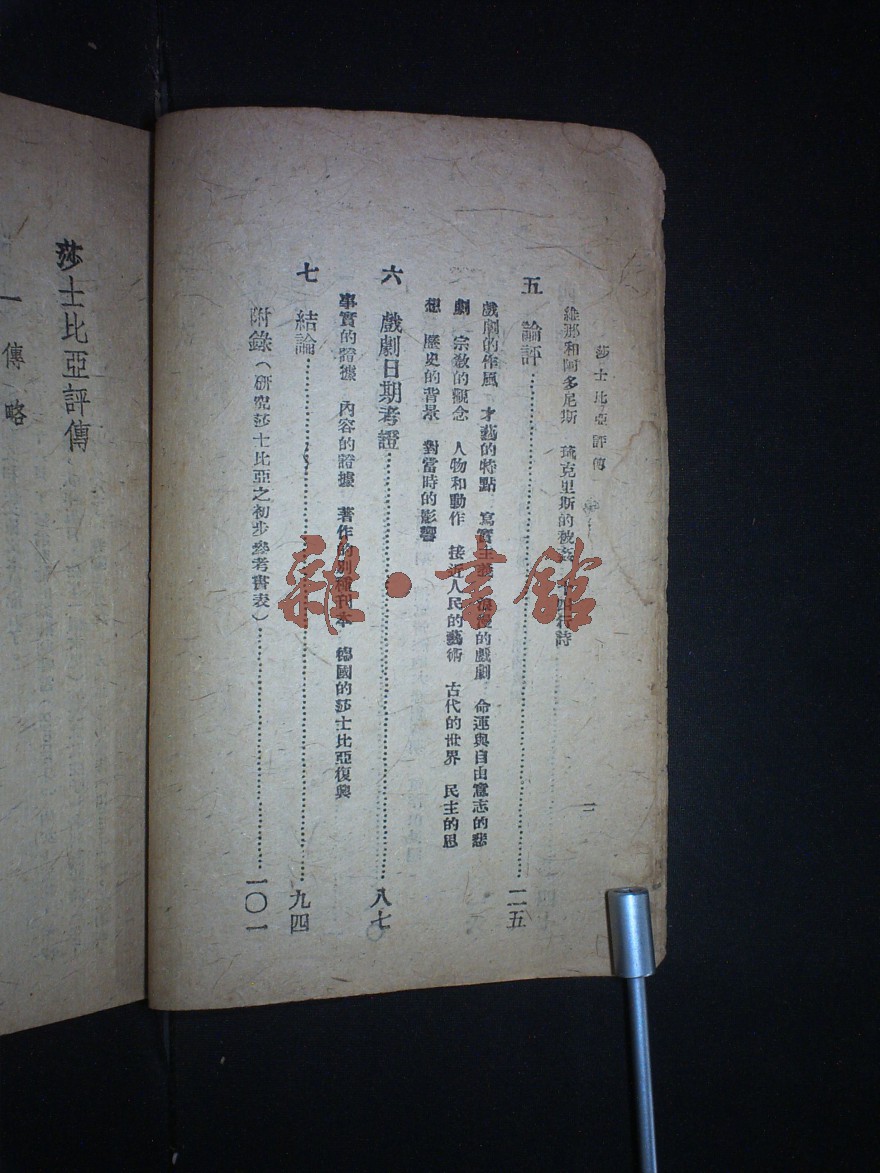 莎士比亞評傳
二
維那和阿多尼斯 琉克里斯的被姦 十四行詩
五 論評……二五
戲劇的作風 才藝的特點 寫實主義 浪漫的戲劇 命運與自由意志的悲
劇 宗教的觀念 人物和動作 接近人民的藝術 古代的世界 民主的思
想 歷史的背景 對當時的影響
六 戲劇日期考證……八七
事實的證據 內容的證據 著作的別種刊本 德國的莎士比亞復興
七 結論……九四
附錄(研究莎士比亞之初步參考書表)……一〇一
莎士比亞評傳
一 傳略
雜·書館